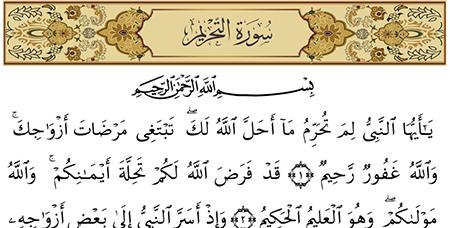 سُورَةُ التَّحْرِيمِ
بِسْمِ اللَّهِ الرَّحْمَٰنِ الرَّحِيمِ
يَٰٓأَيُّهَا النَّبِيُّ لِمَ تُحَرِّمُ مَآ أَحَلَّ اللَّهُ لَكَ ۖ تَبْتَغِى مَرْضَاتَ أَزْوَٰجِكَ ۚ
وَاللَّهُ غَفُورٌ رَّحِيمٌ ﴿١﴾ قَدْ فَرَضَ اللَّهُ لَكُمْ تَحِلَّةَ أَيْمَٰنِكُمْ ۚ وَاللَّهُ
مَوْلَىٰكُمْ ۖ وَهُوَ الْعَلِيمُ الْحَكِيمُ ﴿٢﴾ وَإِذْ أَسَرَّ النَّبِيُّ إِلَىٰ بَعْضِ أَزْوَٰجِهِۦ